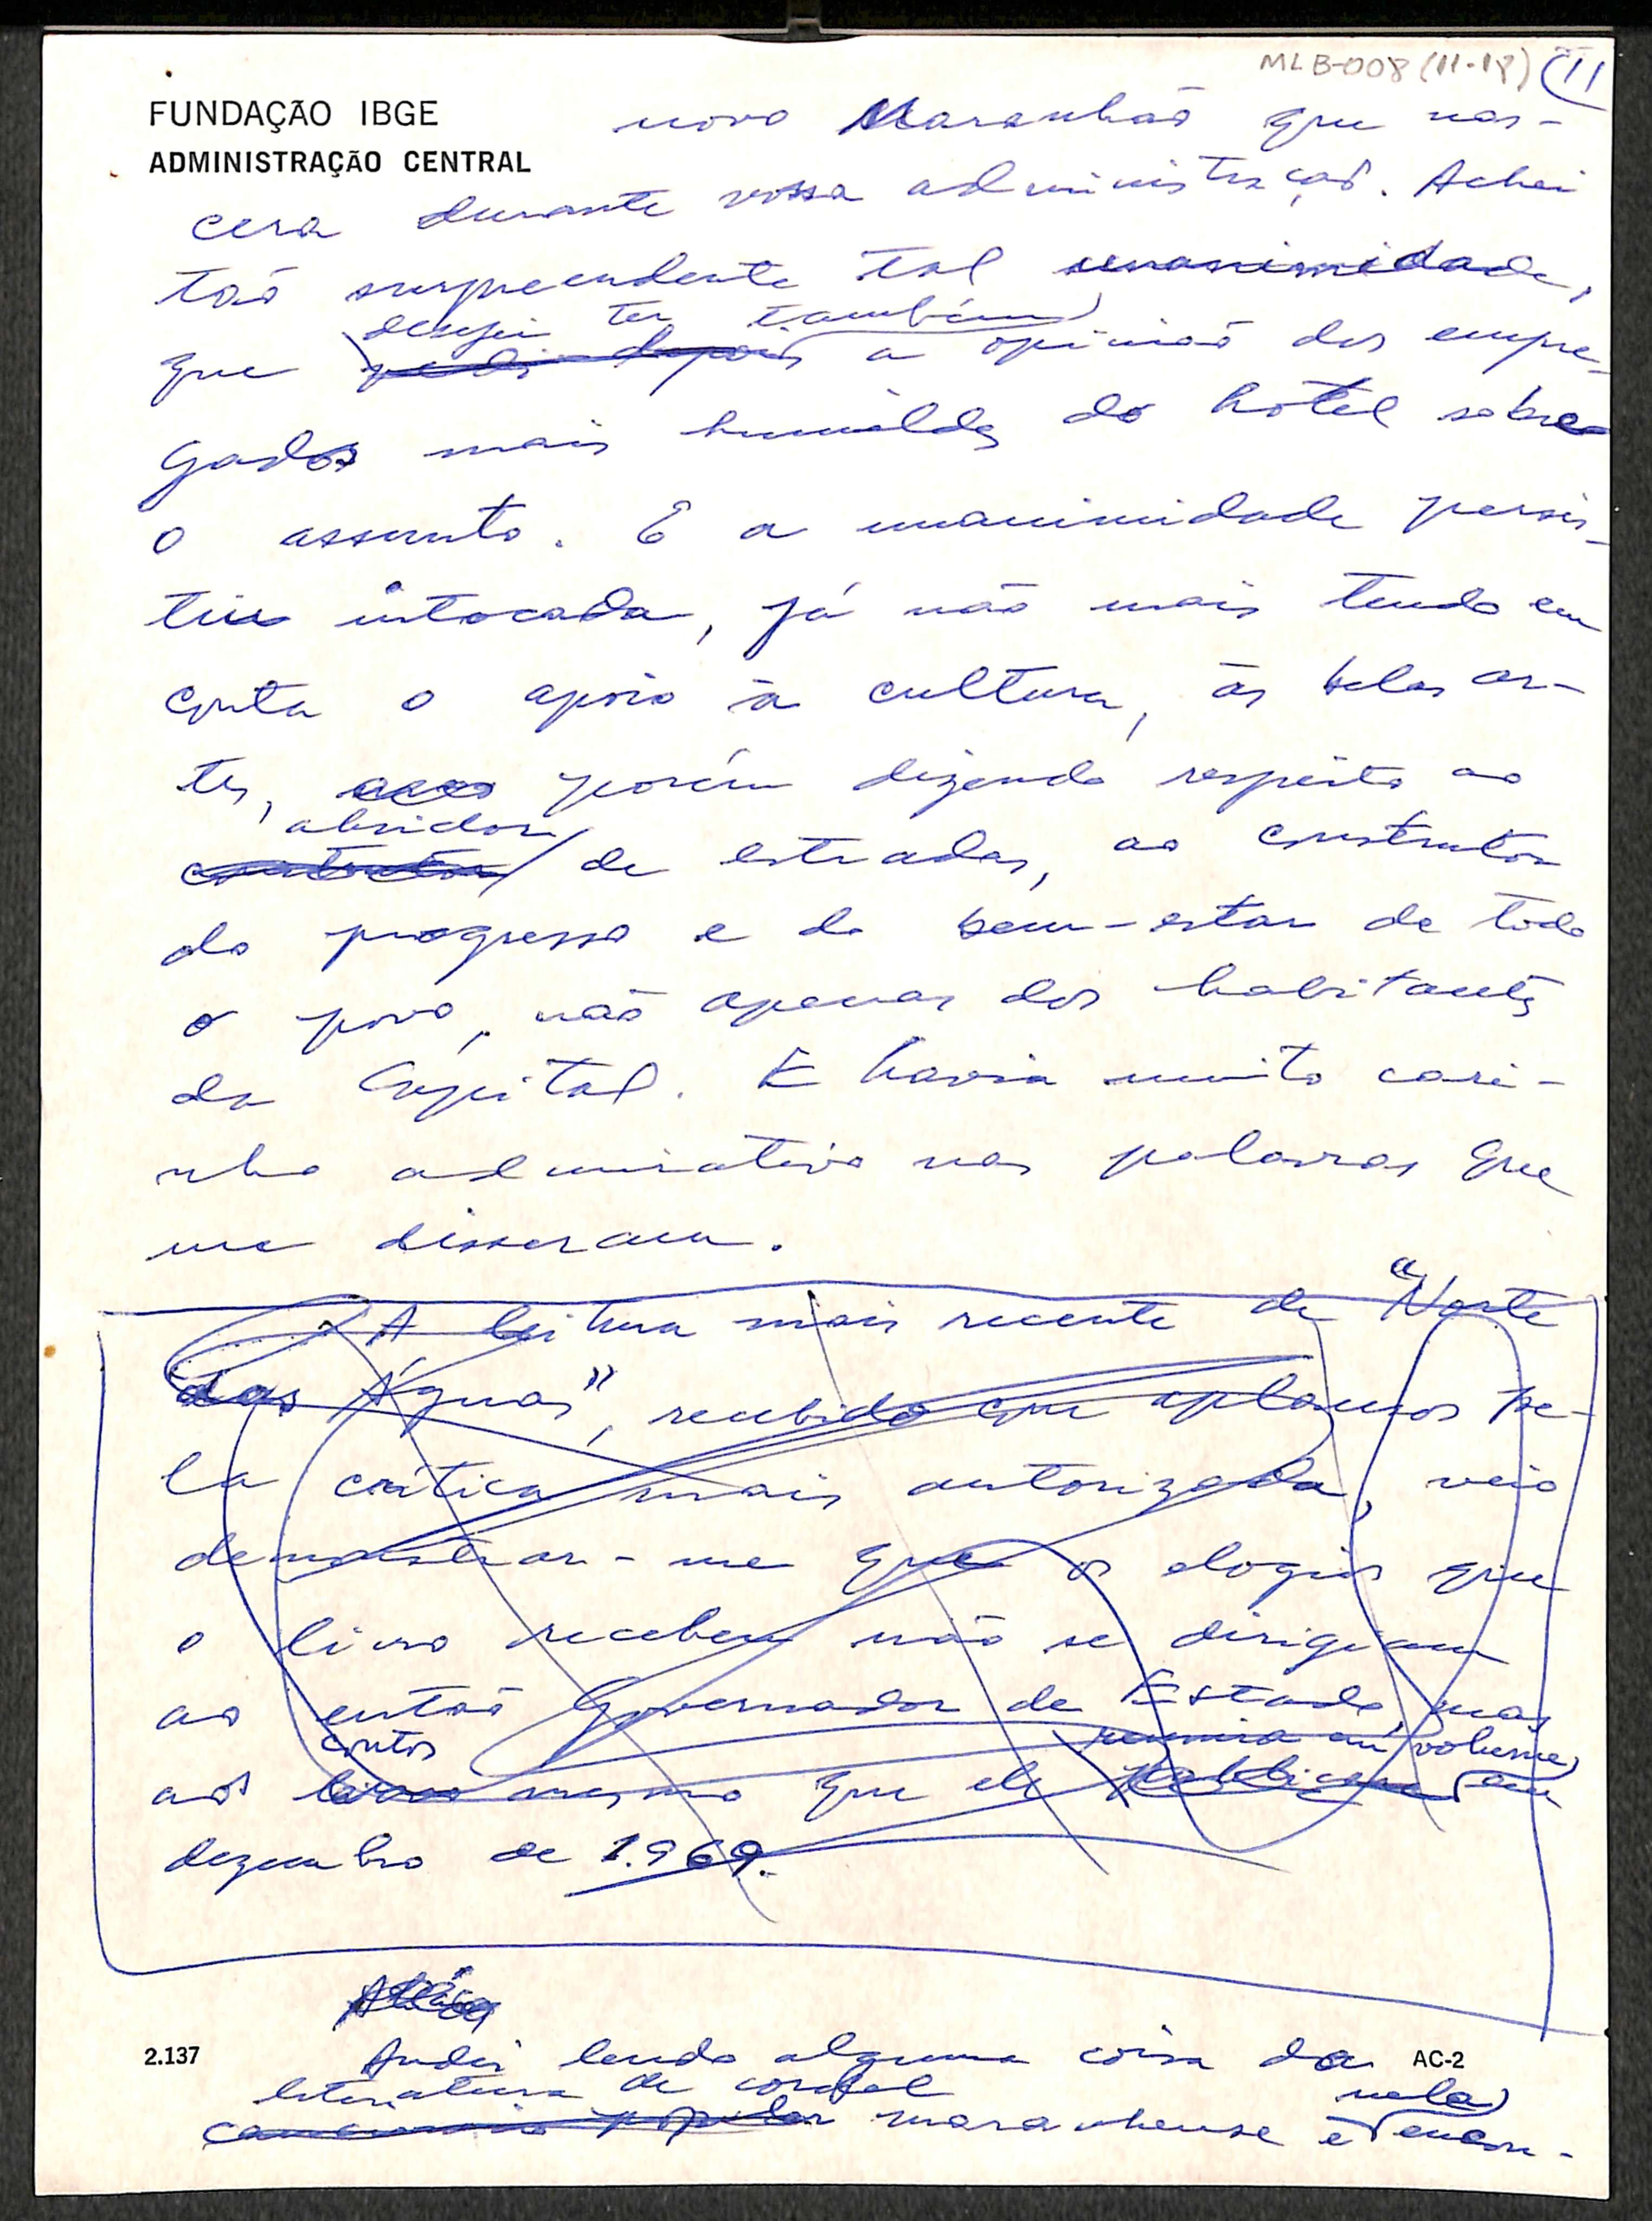 MLB-008 (11-18) 11
FUNDAÇÃO IBGE
ADMINISTRAÇÃO CENTRAL
novo Maranhão que nas-
cera durante vossa administração. Achei
tão surpreendente tal unanimidade,
desejei ter também
que pedi depois a opinião dos empre-
gados mais humildes do hotel sobre
o assunto. E a unanimidade persis-
tiu intocada, já não mais tendo em
conta o apoio à cultura, às belas ar-
tes, porém dizendo respeito ao
abridor
construtor de estradas, ao construtor
do progresso e do bem-estar de todo
o povo, não apenas dos habitantes
da Capital. E havia muito cari-
nho admirativo nas palavras que
me disseram.
A leitura mais recente de "Norte
das Águas", recebido com aplausos pe-
la crítica mais autorizada, veio
demonstrar-me que os elogios que
o livro recebeu não se dirigiam
ao então Governador de Estado, mas
contos reunira em volume
aos livro mesmo que ele publicara em
dezembro de 1.969.
2.137
AC-2
Andei lendo alguma coisa da
literatura de cordel nela
cancioneiro popular maranhense e encon-